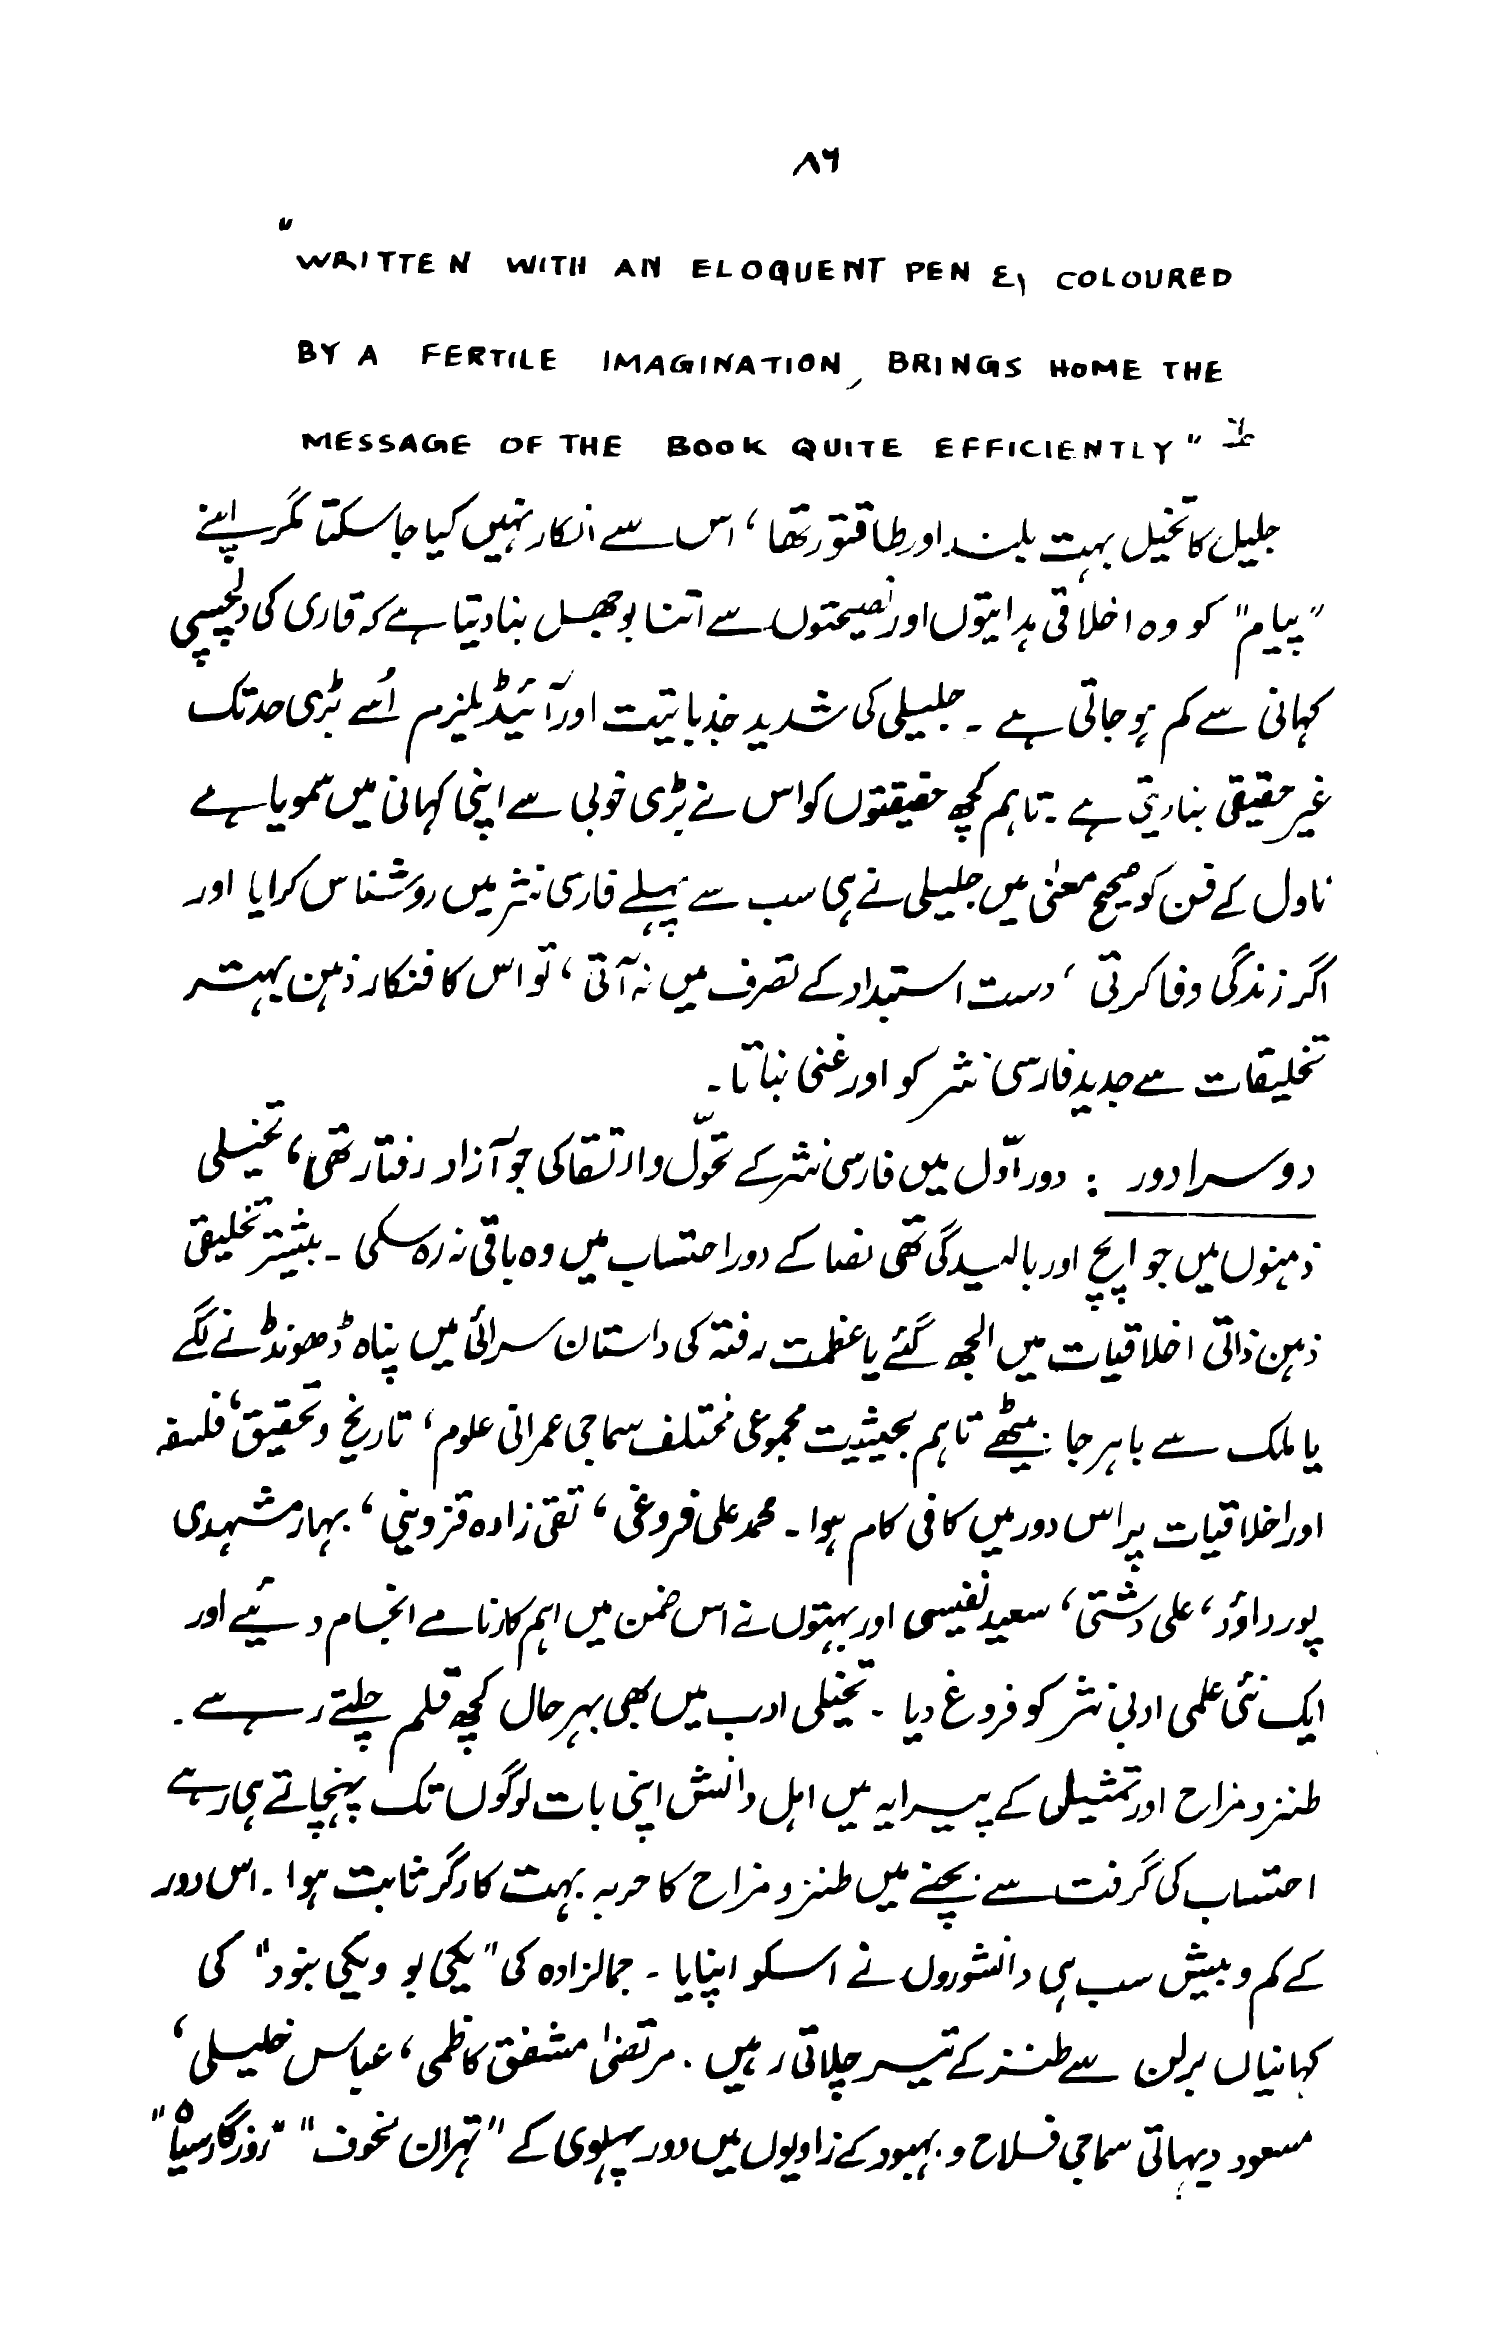 ۸۶
"WRITTEN WITH AN ELOQUENT PEN & COLOURED
BY A FERTILE IMAGINATION, BRINGS HOME THE
MESSAGE OF THE BOOK QUITE EFFICIENTLY"
جلیل کا تخیل بہت بلند اور طاقتور تھا، اس سے انکار نہیں کیا جا سکتا مگر اپنے
"پیام" کو وہ اخلاقی ہدایتوں اور نصیحتوں سے اتنا بوجھل بنا دیتا ہے کہ قاری کی دلچسپی
کہانی سے کم ہو جاتی ہے ۔ جلیلی کی شدید جذباتیت اور آئیڈیلزم اُسے بڑی حد تک
غیر حقیقی بنا دیتی ہے ۔ تاہم کچھ حقیقتوں کو اس نے بڑی خوبی سے اپنی کہانی میں سمویا ہے
ناول کے فن کو صحیح معنی میں جلیلی نے ہی سب سے پہلے فارسی نثر میں روشناس کرایا اور
اگر زندگی وفا کرتی ، دست استبداد کے تصرف میں نہ آتی ، تو اس کا فنکار ذہن بہتر
تخلیقات سے جدید فارسی نثر کو اور غنی بناتا ۔
دوسرا دور : دور اوّل میں فارسی نثر کے تحوّل و ارتقا کی جو آزاد رفتار تھی، تخیلی
ذہنوں میں جو اپج اور بالیدگی تھی رضا کے دور احتساب میں وہ باقی نہ رہ سکی ۔ بیشتر تخلیقی
ذہن ذاتی اخلاقیات میں الجھ گئے یا عظمت رفتہ کی داستان سرائی میں پناہ ڈھونڈنے لگے
یا ملک سے باہر جا بیٹھے تاہم بحیثیت مجموعی مختلف سماجی عمرانی علوم ، تاریخ و تحقیق، فلسفہ
اور اخلاقیات پر اس دور میں کافی کام ہوا ۔ محمد علی فروغی ، تقی زادہ قزوینی ، بہار مشہدی
پور داؤد ، علی دشتی ، سعید نفیسی اور بہتوں نے اس ضمن میں اہم کارنامے انجام دئیے اور
ایک نئی علمی ادبی نثر کو فروغ دیا ۔ تخیلی ادب میں بھی بہرحال کچھ قلم چلتے رہے ۔
طنز و مزاح اور تمثیلی کے پیرایہ میں اہل دانش اپنی بات لوگوں تک پہنچاتے ہی رہے
احتساب کی گرفت سے بچنے میں طنز و مزاح کا حربہ بہت کارگر ثابت ہوا ۔ اس دور
کے کم و بیش سب ہی دانشوروں نے اسکو اپنایا ۔ جمالزادہ کی "یکی بو ویکی بنود" کی
کہانیاں برلن سے طنز کے تیر چلاتی رہیں . مرتضیٰ مشفق کاظمی ، عباس خلیلی ،
مسعود دیہاتی سماجی فلاح و بہبود کے زاویوں میں دور پہلوی کے "تہران مخوف" "روزگار سیاہ"